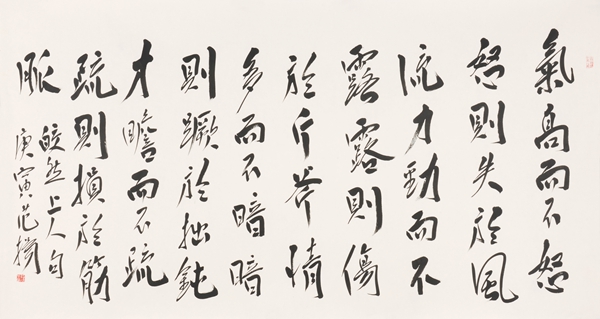 氣高而不怒
怒則失於風
流力勁而不
露露則傷
於斤斧情
多而不暗暗
則蹶於拙鈍
才贍而不疏
疏則損於筋
脈
皎然上人句
庚寅范揚